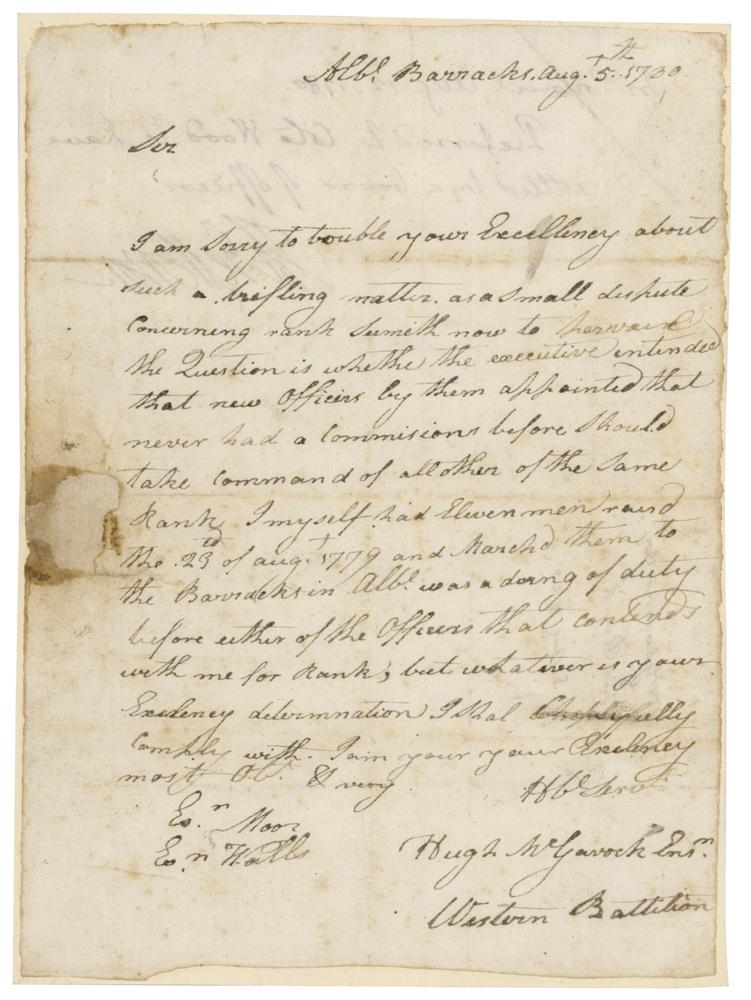 Albe. Barracks. Aug.t 5th. 1780
Sir
I am Sorry to trouble your Excellency about
such a trifling matter. as a Small dispute
Concerning rank Seemeth now to
the Question is whethe the executive intended
that new Officers by them appointed that
never had a Commisions before Should
take Command of all other of the Same
Rank, I myself had Eleven men raisd
the 23d of aug.t 1779 and Marchd them to
the Barracks in Albe. was a doing of duty
before either of the Officers that contends
with me for Rank, but whatever is your
Exelency determnation I Shal
Comply with. I am your your Exelency
most Ob.t & very
Hbe. Servt
Es.n Moor
Es.n Walls
Hugh McGavock Ensn.
Western Battilion